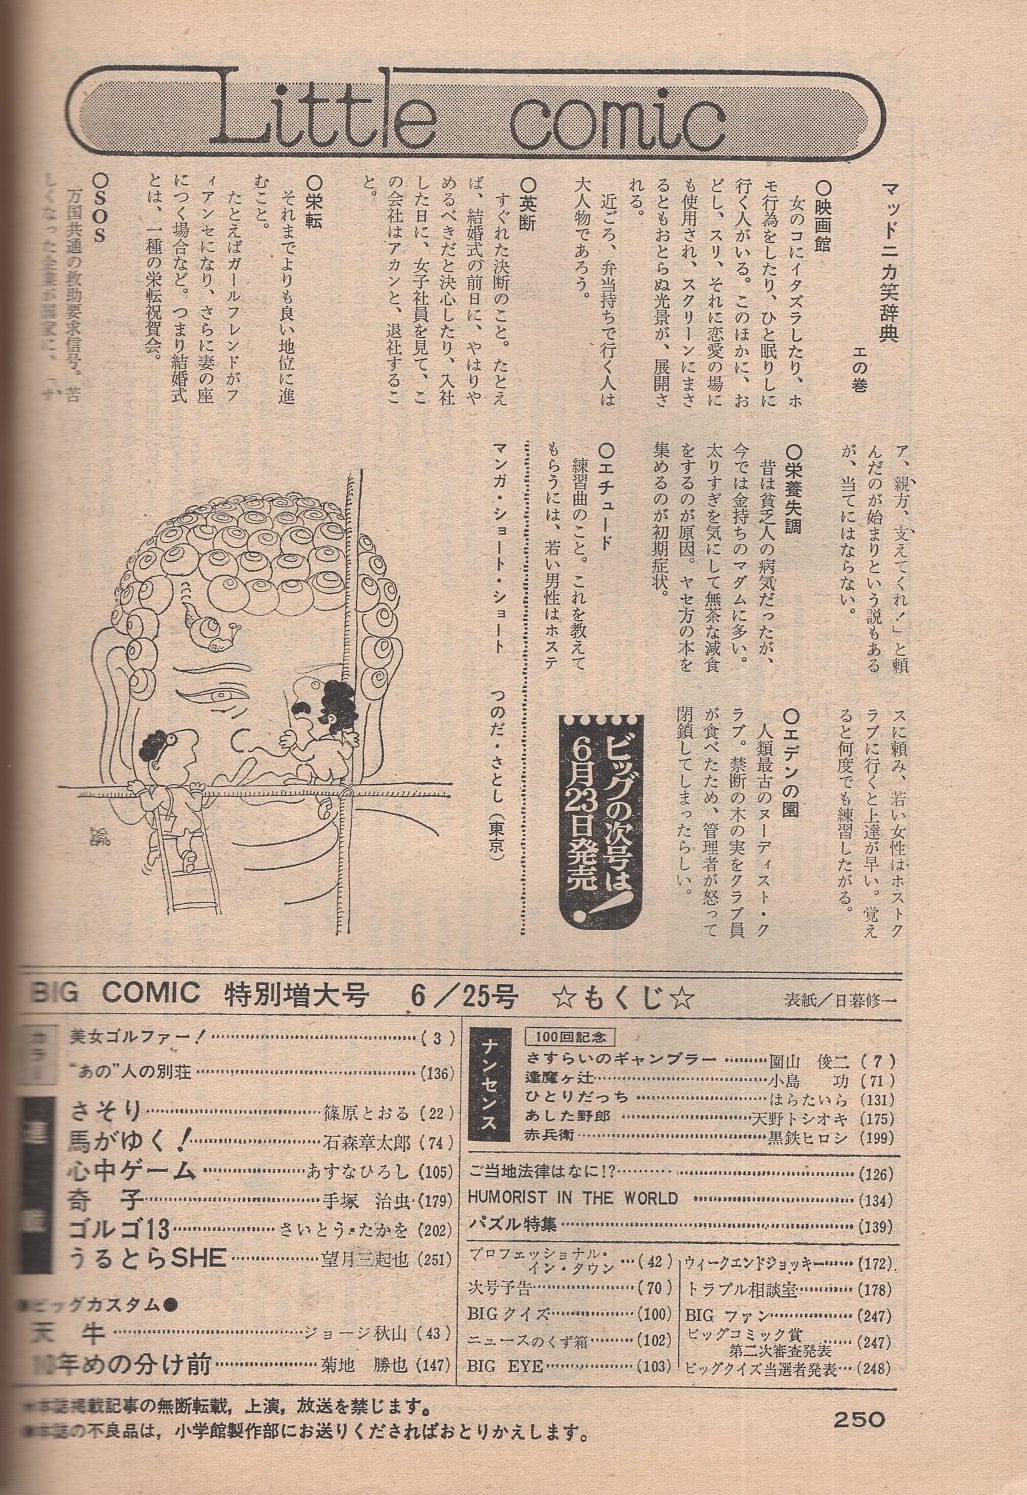 Little comic
マッドニカ笑辞典
エの巻
○映画館
女のコにイタズラしたり、ホ
モ行為をしたり、ひと眠りしに
行く人がいる。このほかに、お
どし、スリ、それに恋愛の場に
も使用され、スクリーンにまさ
るともおとらぬ光景が、展開さ
れる。
近ごろ、弁当持ちで行く人は
大人物であろう。
○英断
すぐれた決断のこと。たとえ
ば、結婚式の前日に、やはりや
めるべきだと決心したり、入社
した日に、女子社員を見て、こ
の会社はアカンと、退社するこ
と。
○栄転
それまでよりも良い地位に進
むこと。
たとえばガールフレンドがフ
ィアンセになり、さらに妻の座
につく場合など。つまり結婚式
とは、一種の栄転祝賀会。
○SOS
万国共通の救助要求信号。苦
しくなった企業が国家に、「サ
ア、親方、支えてくれ!」と頼
んだのが始まりという説もある
が、当てにはならない。
○栄養失調
昔は貧乏人の病気だったが、
今では金持ちのマダムに多い。
太りすぎを気にして無茶な減食
をするのが原因。ヤセ方の本を
集めるのが初期症状。
○エチュード
練習曲のこと。これを教えて
もらうには、若い男性はホステ
スに頼み、若い女性はホストク
ラブに行くと上達が早い。覚え
ると何度でも練習したがる。
○エデンの園
人類最古のヌーディスト・ク
ラブ。禁断の木の実をクラブ員
が食べたため、管理者が怒って
閉鎖してしまったらしい。
ビッグの次号は
6月23日発売!
マンガ・ショート・ショート つのだ・さとし(東京)
BIG COMIC 特別増大号 6/25号 ☆もくじ☆ 表紙/日暮修一
カラー
美女ゴルファー!(3)
“あの”人の別荘(136)
連載
さそり 篠原とおる(22)
馬がゆく! 石森章太郎(74)
心中ゲーム あすなひろし(105)
奇子 手塚治虫(179)
ゴルゴ13 さいとう・たかを(202)
うるとらSHE 望月三起也(251)
●ビッグカスタム●
天牛 ジョージ秋山(43)
10年めの分け前 菊地勝也(147)
ナンセンス
100回記念
さすらいのギャンブラー 園山俊二(7)
逢魔ヶ辻 小島功(71)
ひとりだっち はらたいら(131)
あした野郎 天野トシオキ(175)
赤兵衛 黒鉄ヒロシ(199)
ご当地法律はなに!?(126)
HUMORIST IN THE WORLD(134)
パズル特集(139)
プロフェッショナル・
イン・タウン(42)
次号予告(70)
BIGクイズ(100)
ニュースのくず箱(102)
BIG EYE(103)
ウィークエンドジョッキー(172)
トラブル相談室(178)
BIG ファン(247)
ビッグコミック賞
第二次審査発表(247)
ビッグクイズ当選者発表(248)
★本誌掲載記事の無断転載,上演,放送を禁じます。
●本誌の不良品は,小学館製作部にお送りくださればおとりかえします。
250